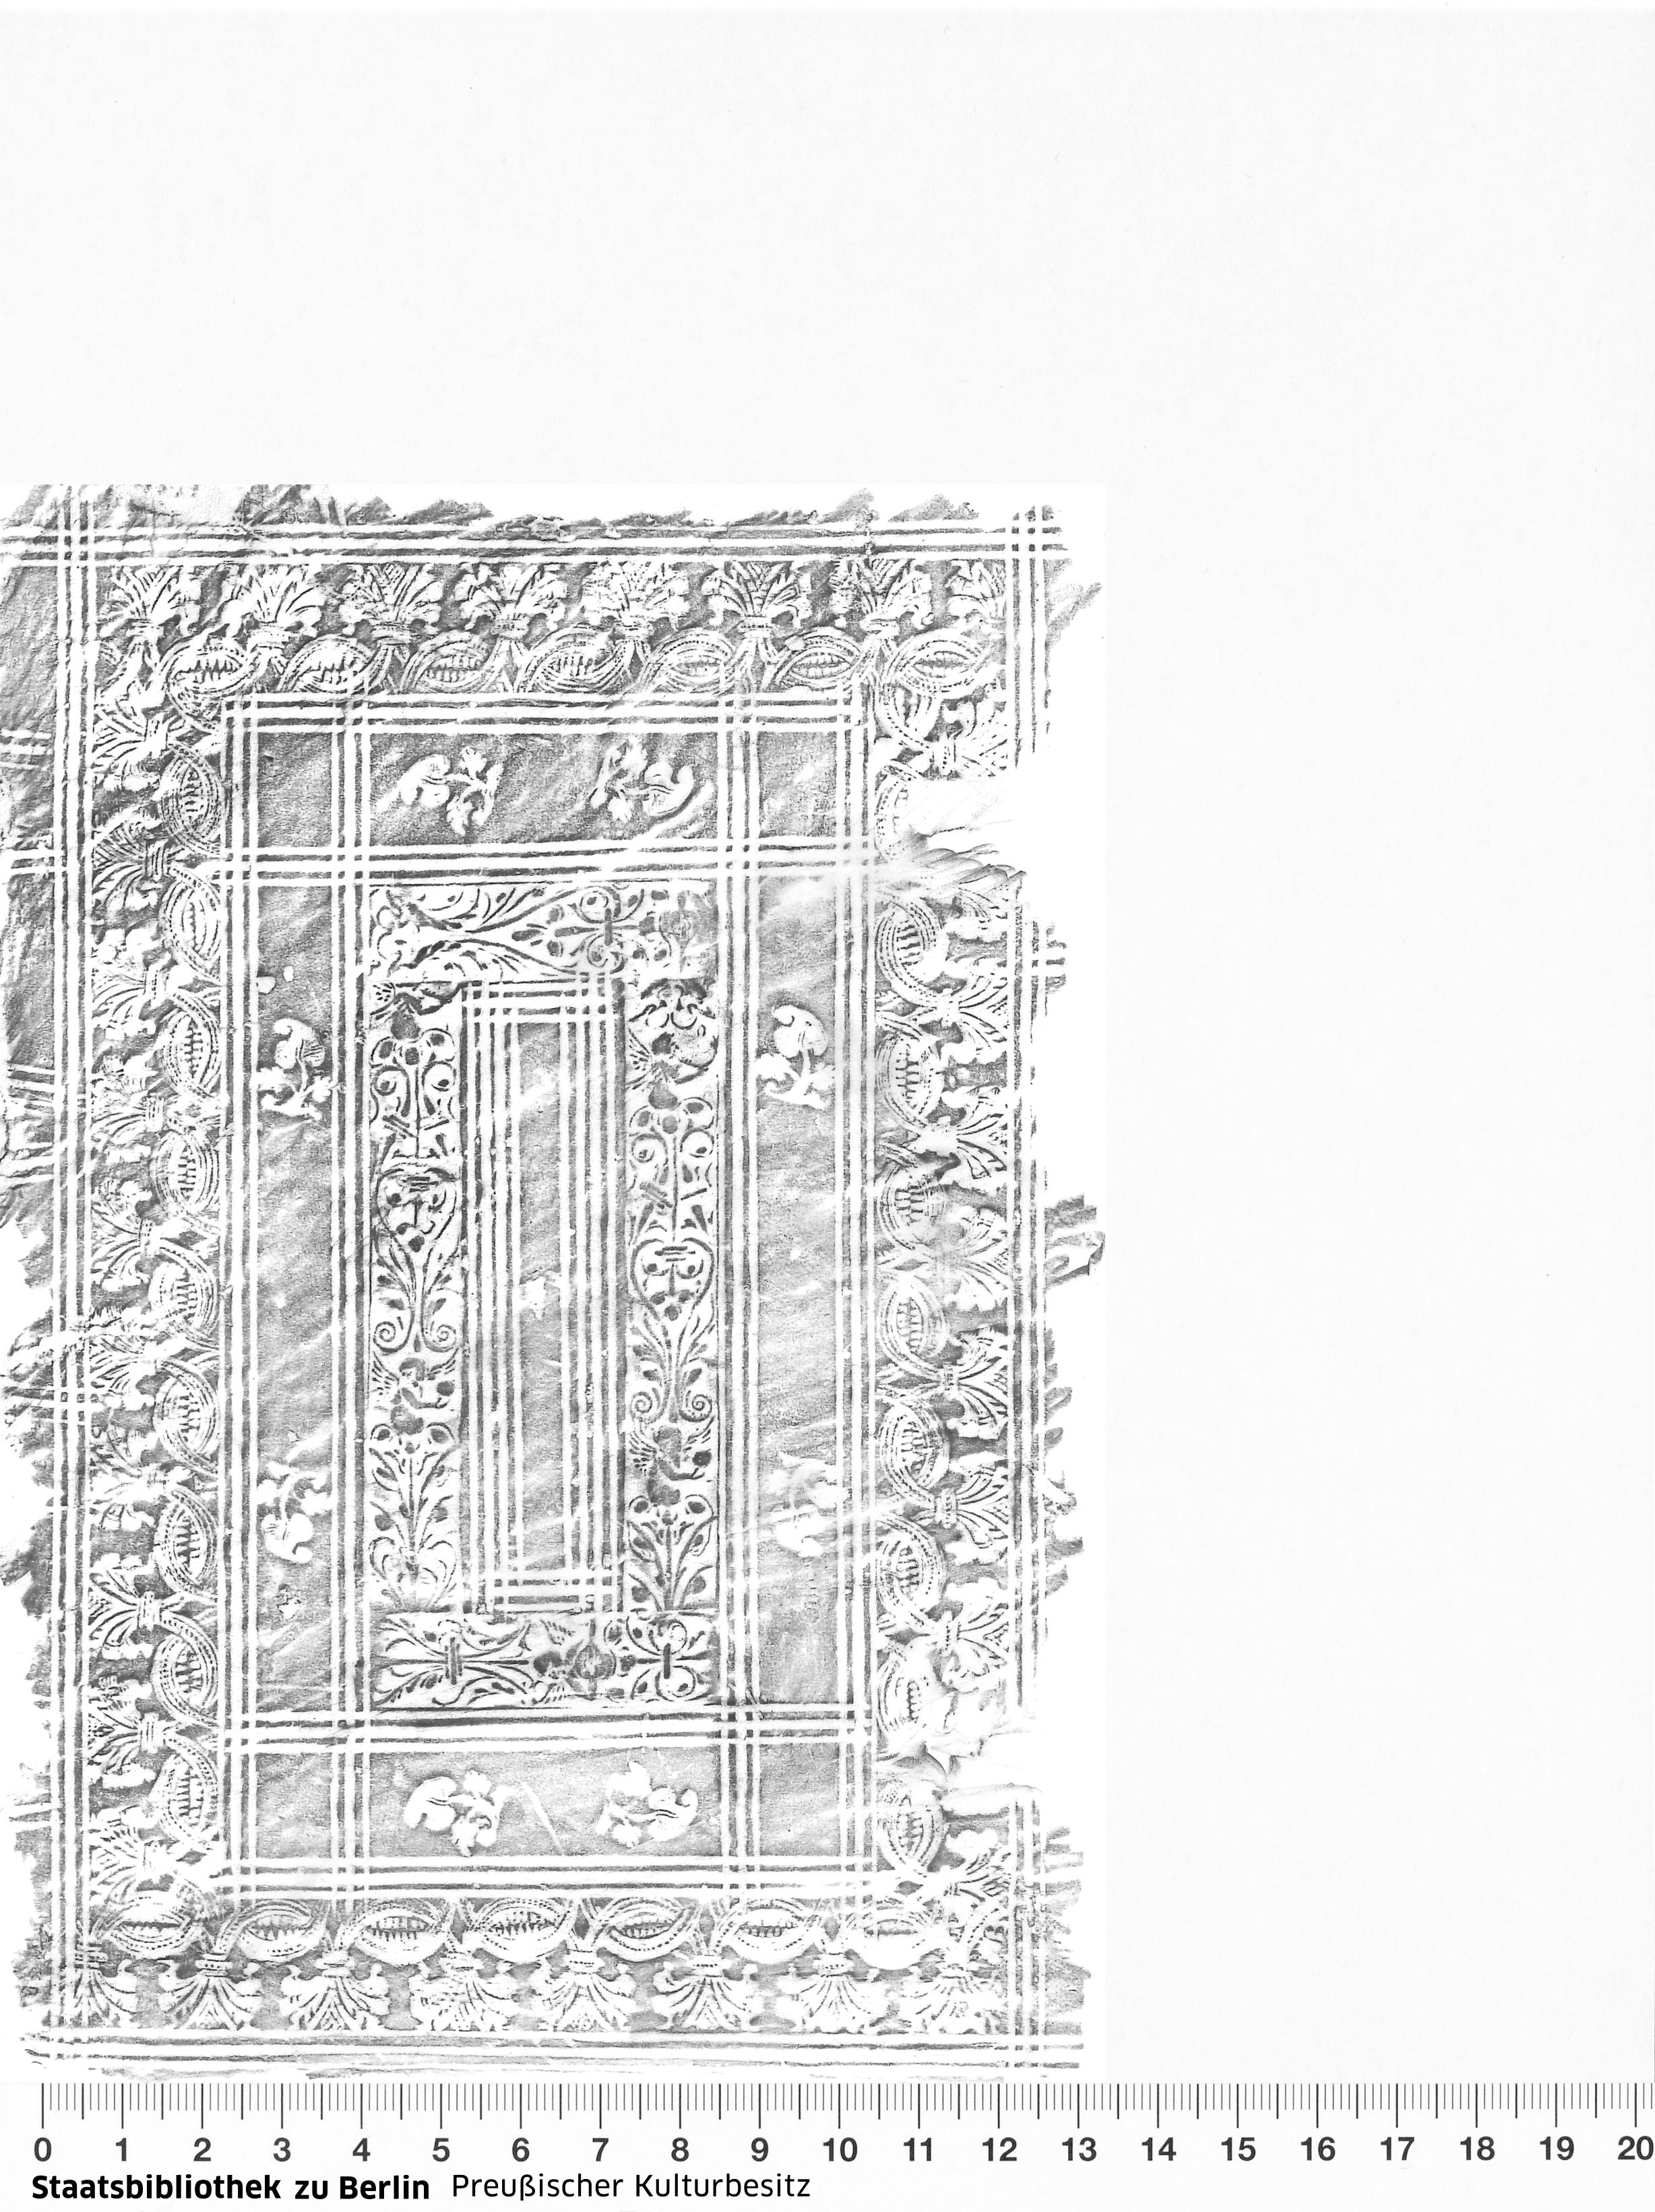 0 1 2 3 4 5 6 7 8 9 10 11 12 13 14 15 16 17 18 19 20
Staatsbibliothek zu Berlin Preußischer Kulturbesitz